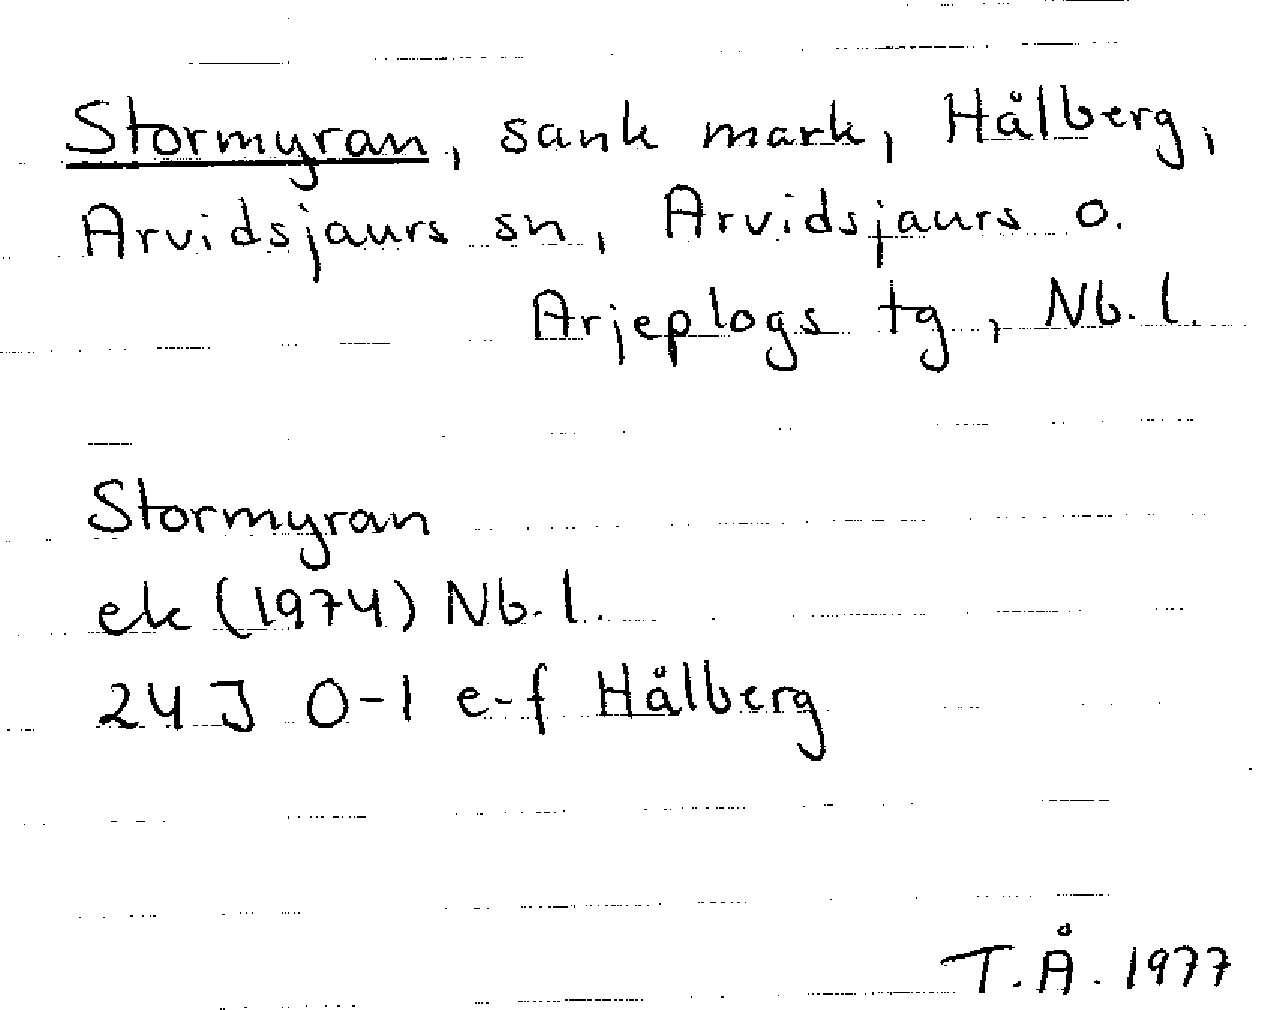 Stormyran, sank mark, Hålberg,
Arvidsjaurs sn, Arvidsjaurs o.
Arjeplogs tg, Nb. l.
Stormyran
ek (1974) Nb. l.
24 J 0-1 e-f Hålberg
T.Å. 1977